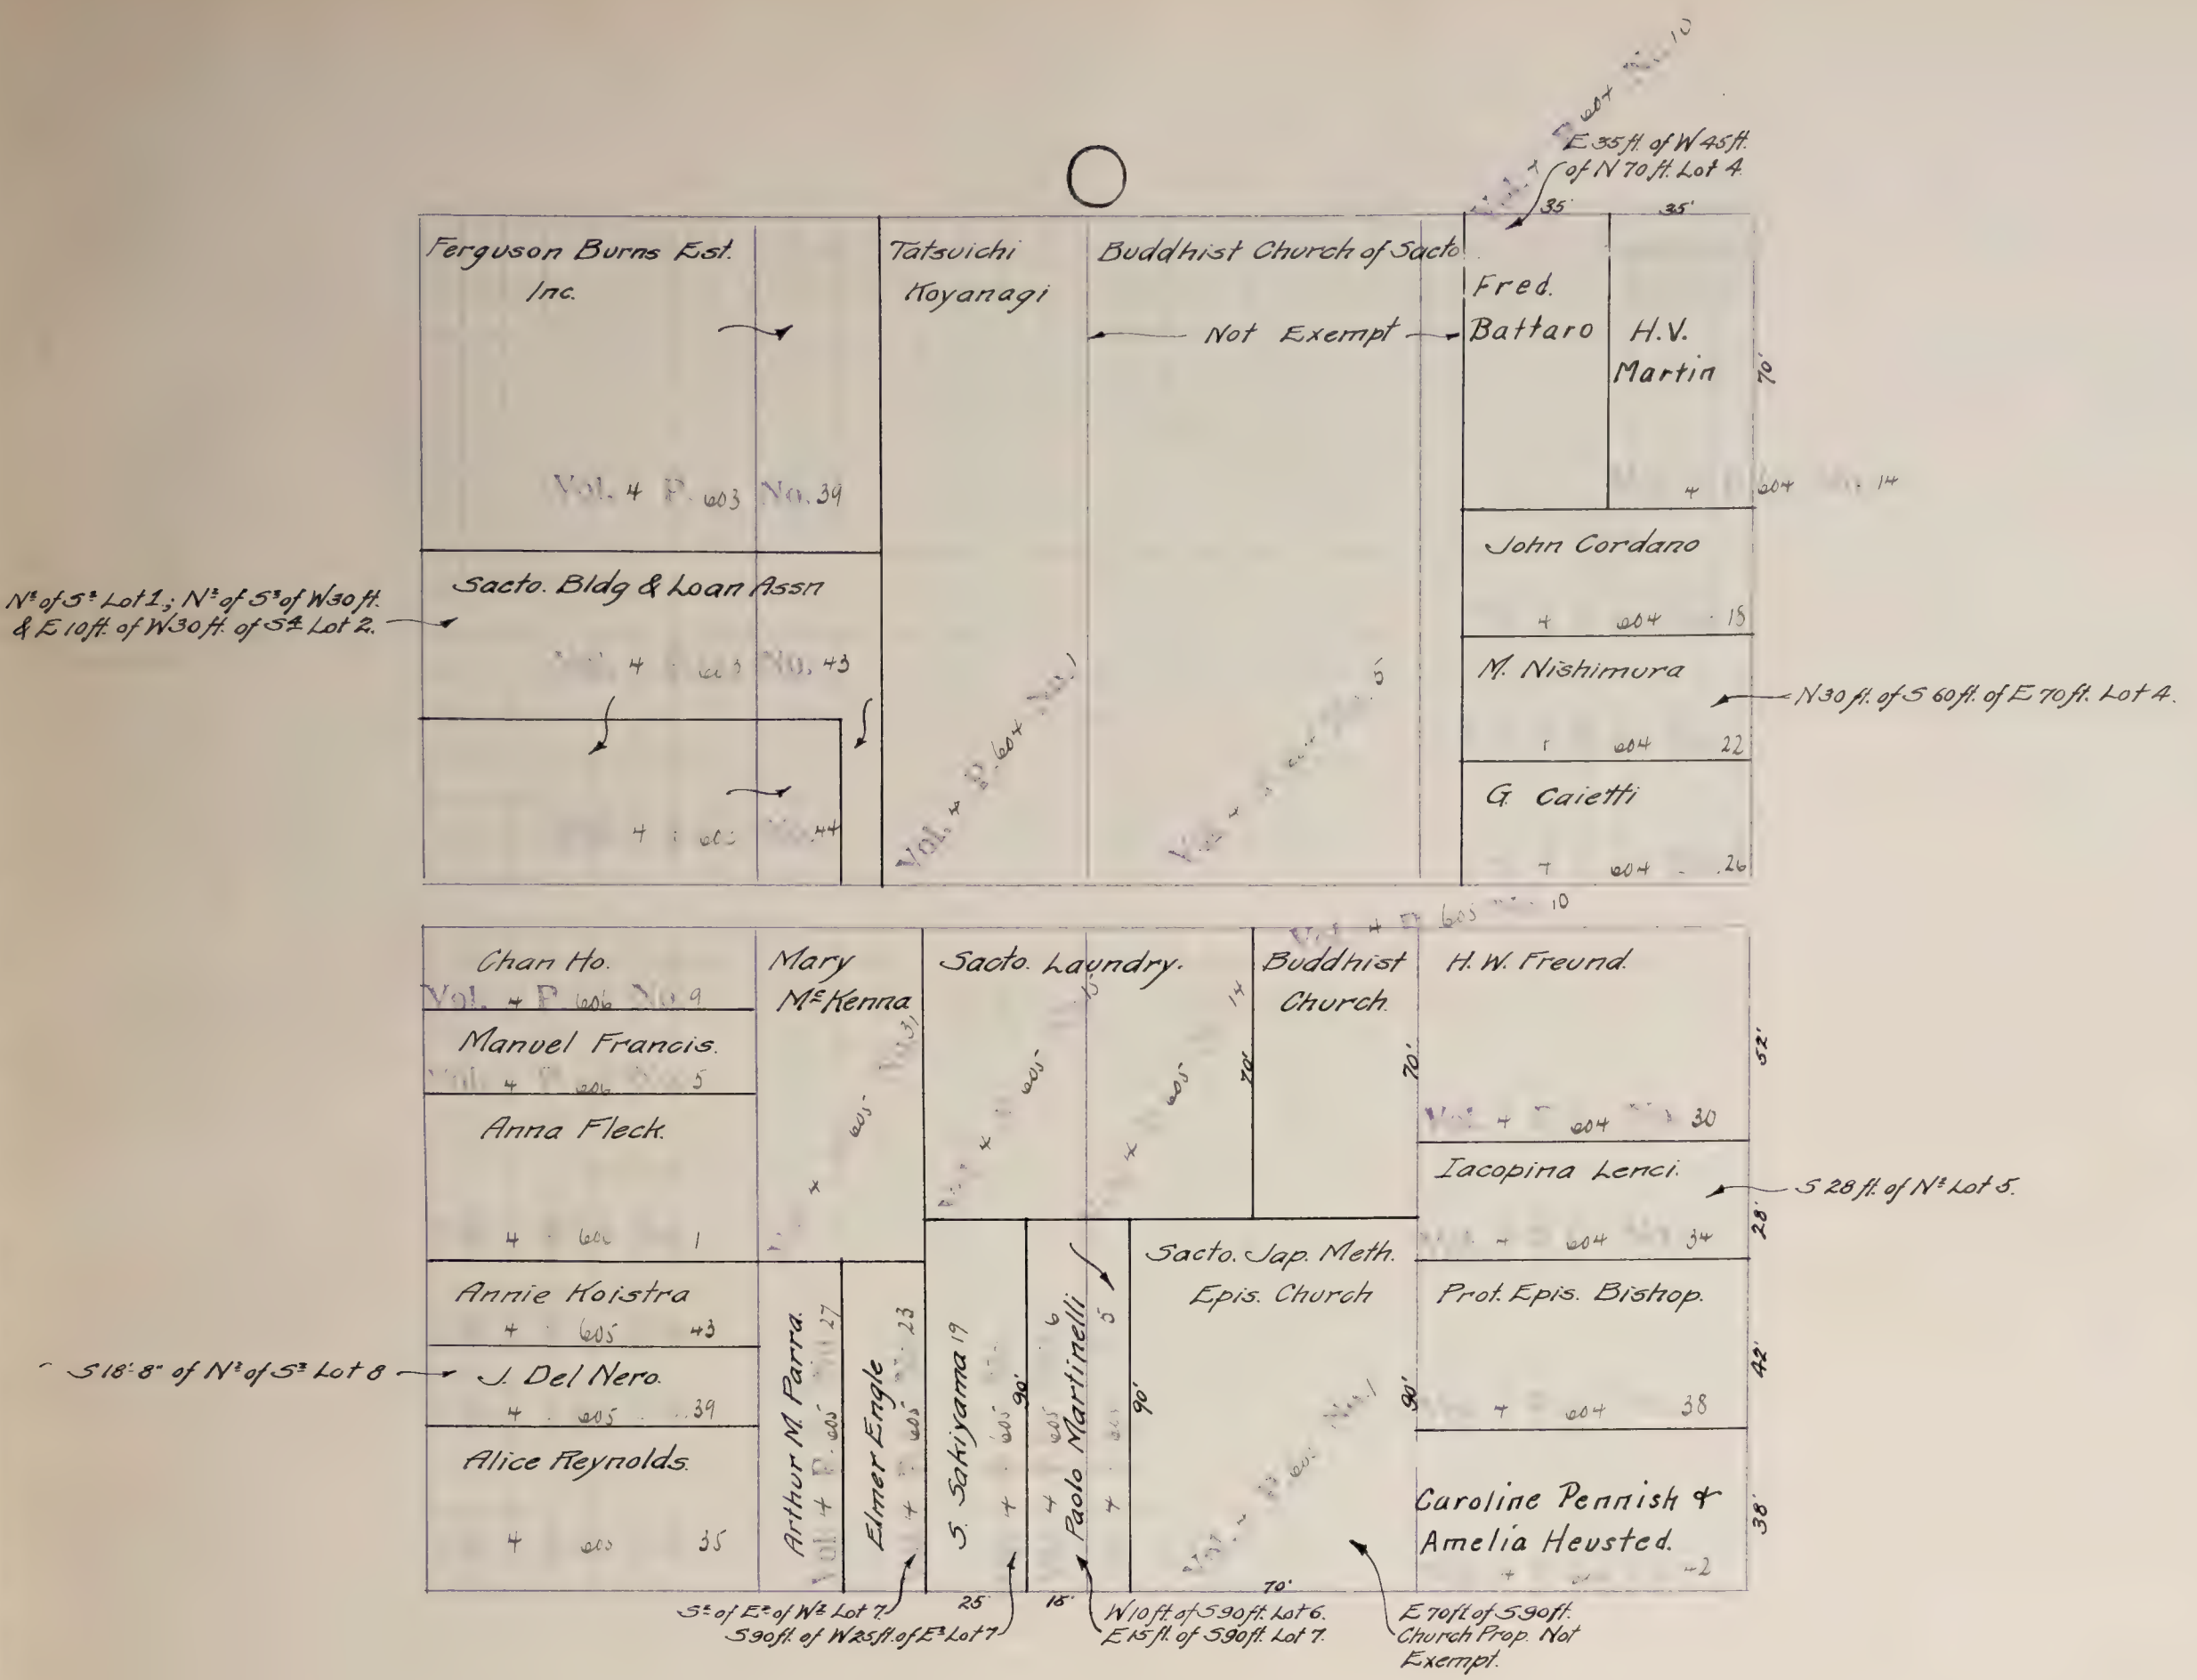 O
E 35 ft. of W 45 ft.
of N 70 ft. Lot 4.
604 No. 10
35'
35'
Ferguson Burns Est.
Inc.
Vol. 4 P. 603 No. 39
Tatsuichi
Koyanagi
Vol. 4 P. 604 No. 1
Buddhist Church of Sacto
Not Exempt
Vol. 4 5
Fred.
Battaro
H.V.
Martin
70'
4 604 14
John Cordano
4 604 18
M. Nishimura
604 22
N 30 ft. of S 60 ft. of E 70 ft. Lot 4.
G. Caietti
604 26
Sacto. Bldg & Loan Assn
4 No. 43
N½ of S½ Lot 1; N½ of S½ of W 30 ft.
& E 10 ft. of W 30 ft. of S¼ Lot 2.
4 44
4 605 10
Chan Ho.
Vol. 4 P 606 No 9
Manuel Francis.
Vol. 4 P 606 5
Anna Fleck.
4 1
Annie Koistra
4 605 43
J. Del Nero.
4 605 39
S 18'-8" of N½ of S½ Lot 8
Alice Reynolds.
4 35
Mary
McKenna
4 605 No 31
Sacto. Laundry.
4 605 15
4 605 14
70'
Buddhist
Church.
70'
H. W. Freund.
Vol. 4 604 30
52'
Iacopina Lenci.
604 34
S 28 ft. of N½ Lot 5.
28'
Prot. Epis. Bishop.
4 604 38
42'
Caroline Pennish &
Amelia Heusted.
38'
Arthur M. Parra.
Vol 4 P. 605 No 27
Elmer Engle
4 P. 605 23
S. Sakiyama 19
4 605
90'
Paolo Martinelli
4 605 6
4 5
90'
Sacto. Jap. Meth.
Epis. Church
Vol. P. 605 No. 1
90'
25'
15'
70'
S½ of E½ of W½ Lot 7.
S 90 ft. of W 25 ft. of E½ Lot 7
W 10 ft. of S 90 ft. Lot 6.
E 15 ft. of S 90 ft. Lot 7.
E 70 ft of S 90 ft.
Church Prop. Not
Exempt.